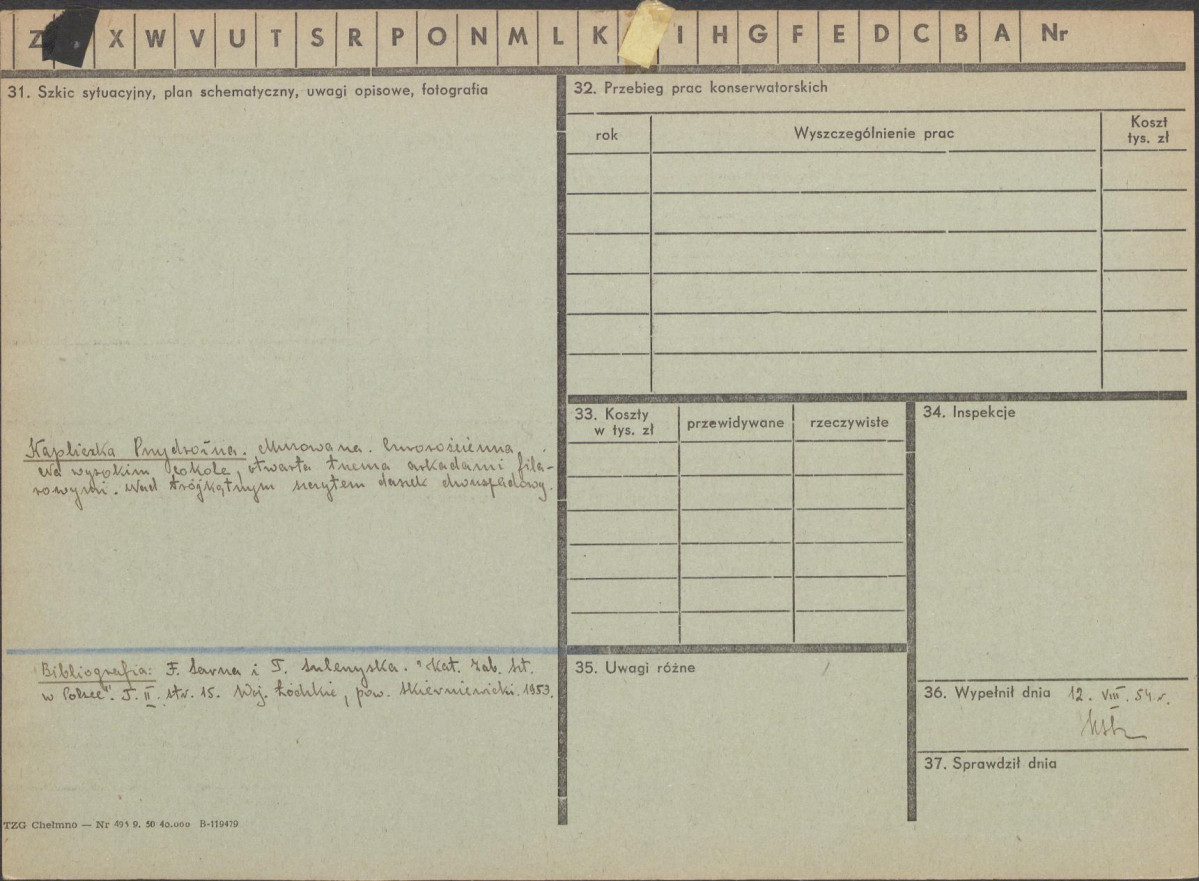 Z X W V U T S R P O N M L K I H G F E D C B A Nr
31. Szkic sytuacyjny, plan schematyczny, uwagi opisowe, fotografia
Kapliczka Przydrożna. Murowana. Czworościenna,
na wysokim cokole, otwarta trzema arkadami fila-
rowymi. Nad trójkątnym szczytem daszek dwuspadowy.
Bibliografia: F. i T. "Kat. Zab. Szt.
w Polsce". T. II. str. 15. Woj. Łódzkie, pow. skierniewicki. 1953.
TZG Chełmno — Nr 495 9. 50 40.000 B-119479
32. Przebieg prac konserwatorskich
rok
Wyszczególnienie prac
Koszt
tys. zł
33. Koszty
w tys. zł
przewidywane
rzeczywiste
34. Inspekcje
35. Uwagi różne
36. Wypełnił dnia 12. VIII. 54 r.
37. Sprawdził dnia